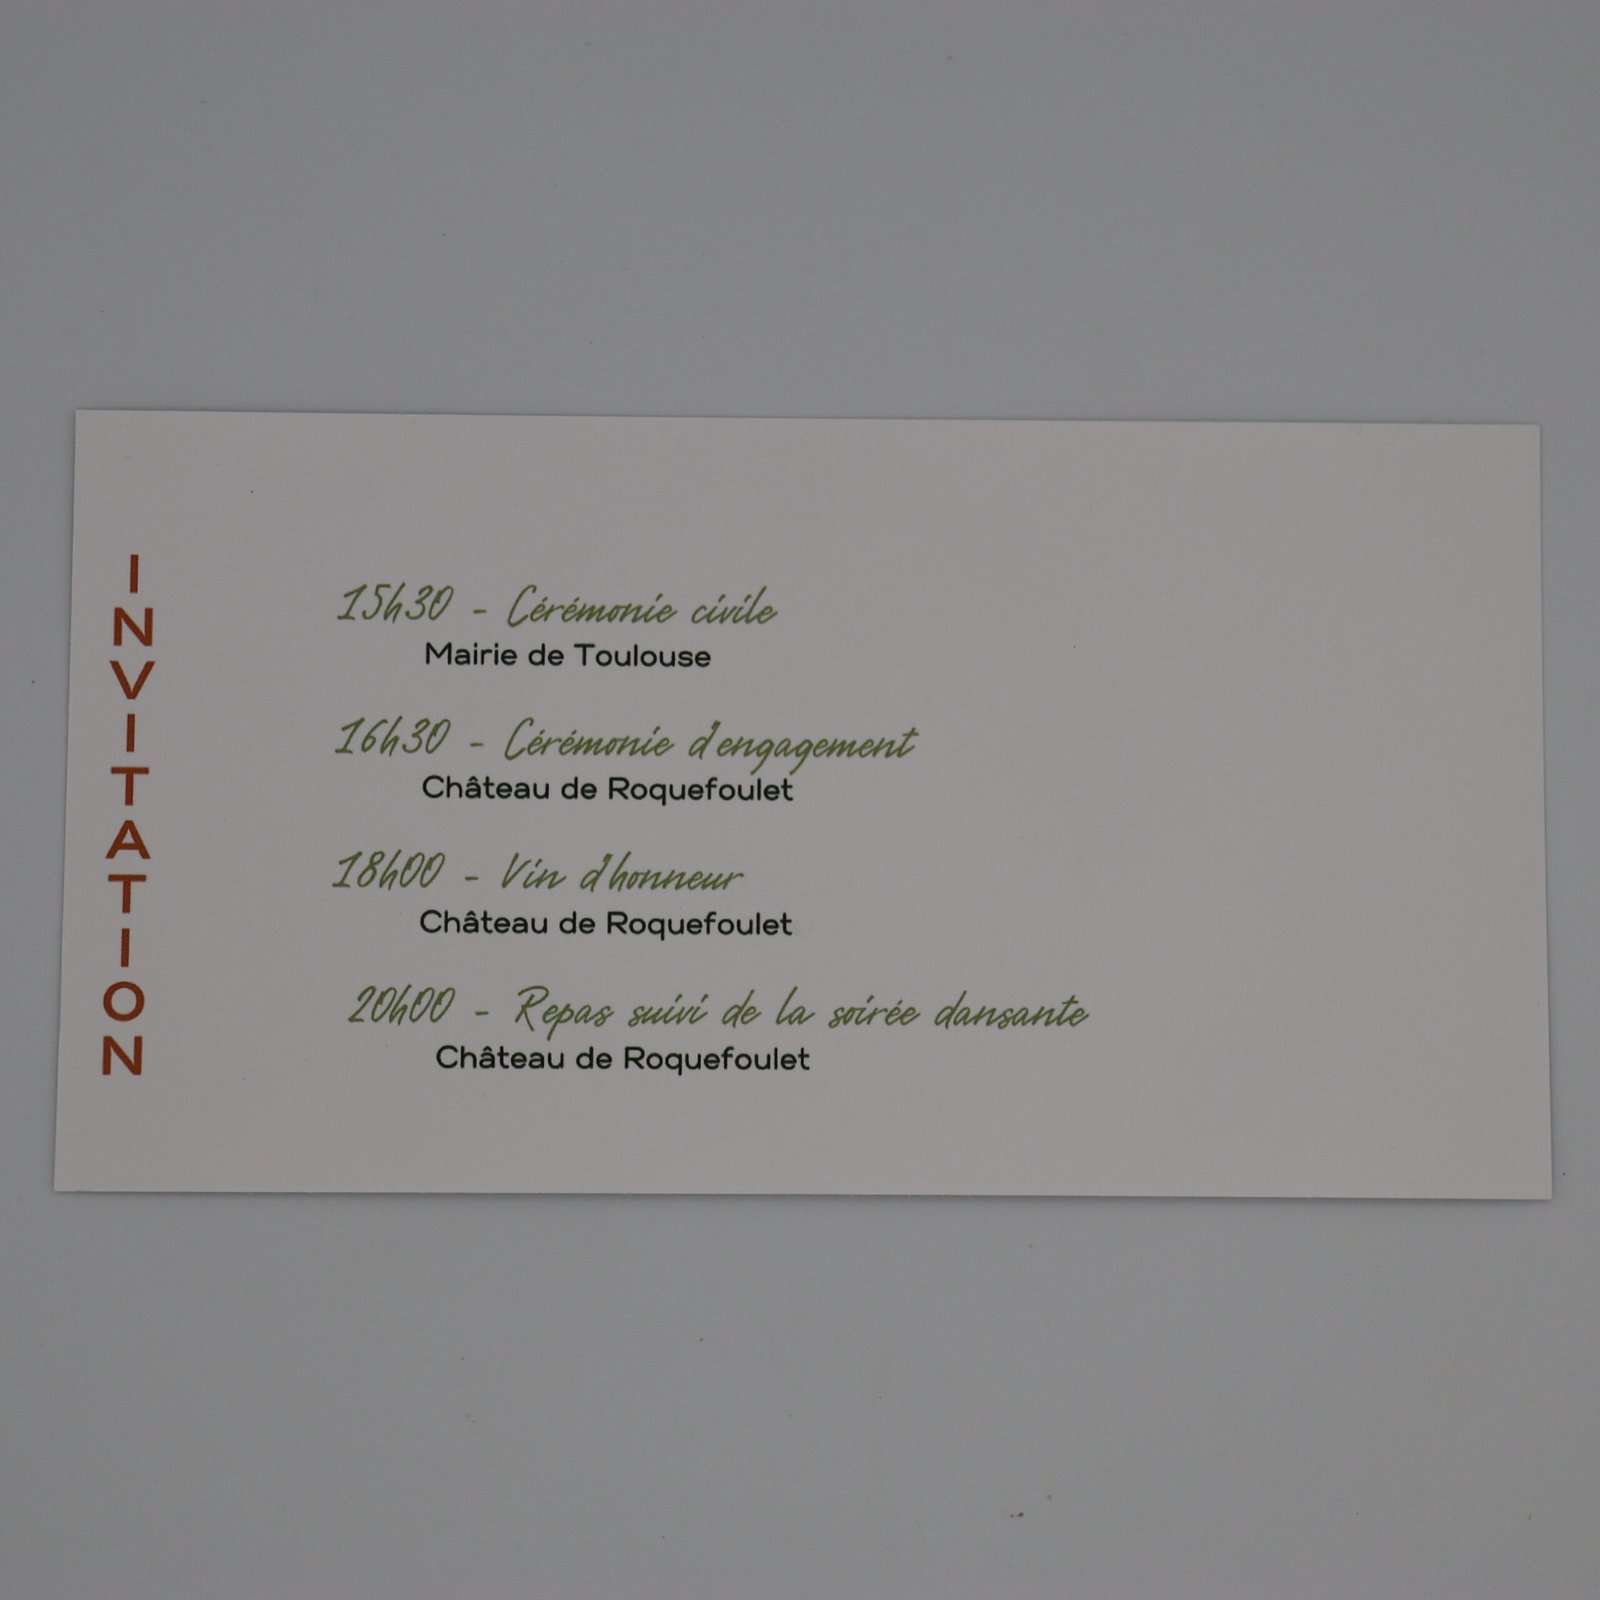 INVITATION
15h30 - Cérémonie civile
Mairie de Toulouse
16h30 - Cérémonie d'engagement
Château de Roquefoulet
18h00 - Vin d'honneur
Château de Roquefoulet
20h00 - Repas suivi de la soirée dansante
Château de Roquefoulet